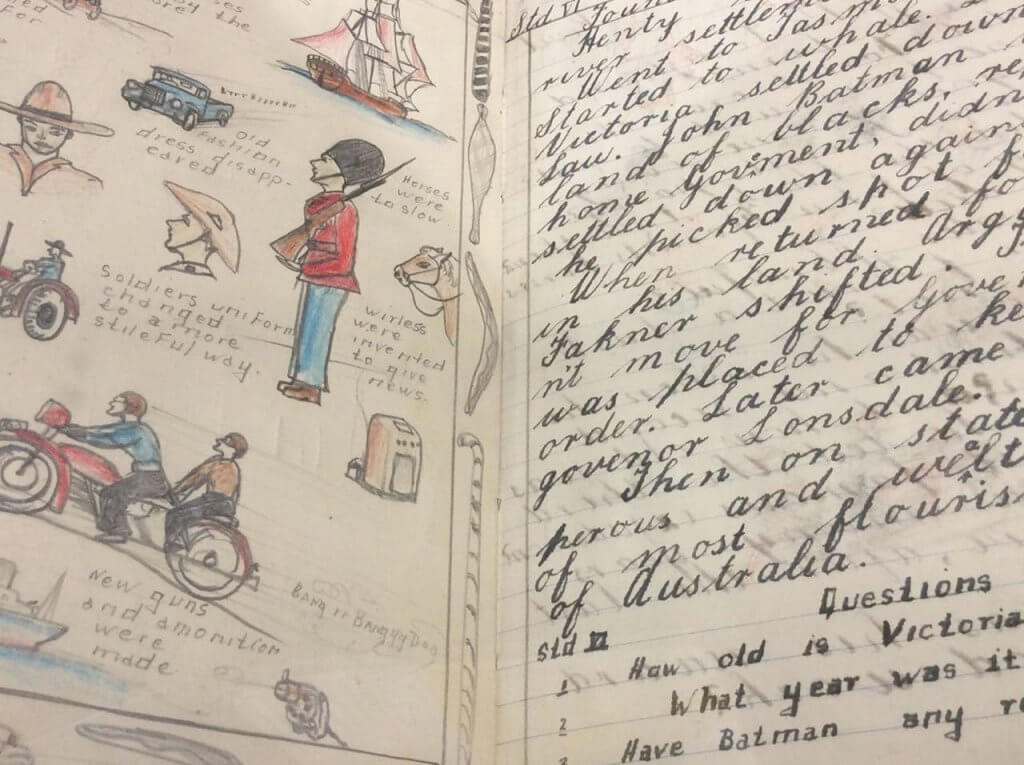 for
more by the
old
fashion
dress disapp-
eared
Horses
were
to slow.
Soldiers uniform
changed
to a more
stileful way.
wirless
were
invented
to give
news.
New guns
and amonition
were
made
Std VI
Henty
river settlem
Went to Tas
started to whale.
Victoria settled down
law. John Batman
land of blacks, re
home Govement, didn
settled down again
he picked spot f
When returned fo
in his land. Arg
Fakner shifted.
n't move for Gove
was placed to ke
order. Later came
govenor Lonsdale.
Then on state
perous and wealt
of most flouris
of Australia.
Questions
Std VI
1 Haw old is Victoria
2 What year was it
3 Have Batman any re